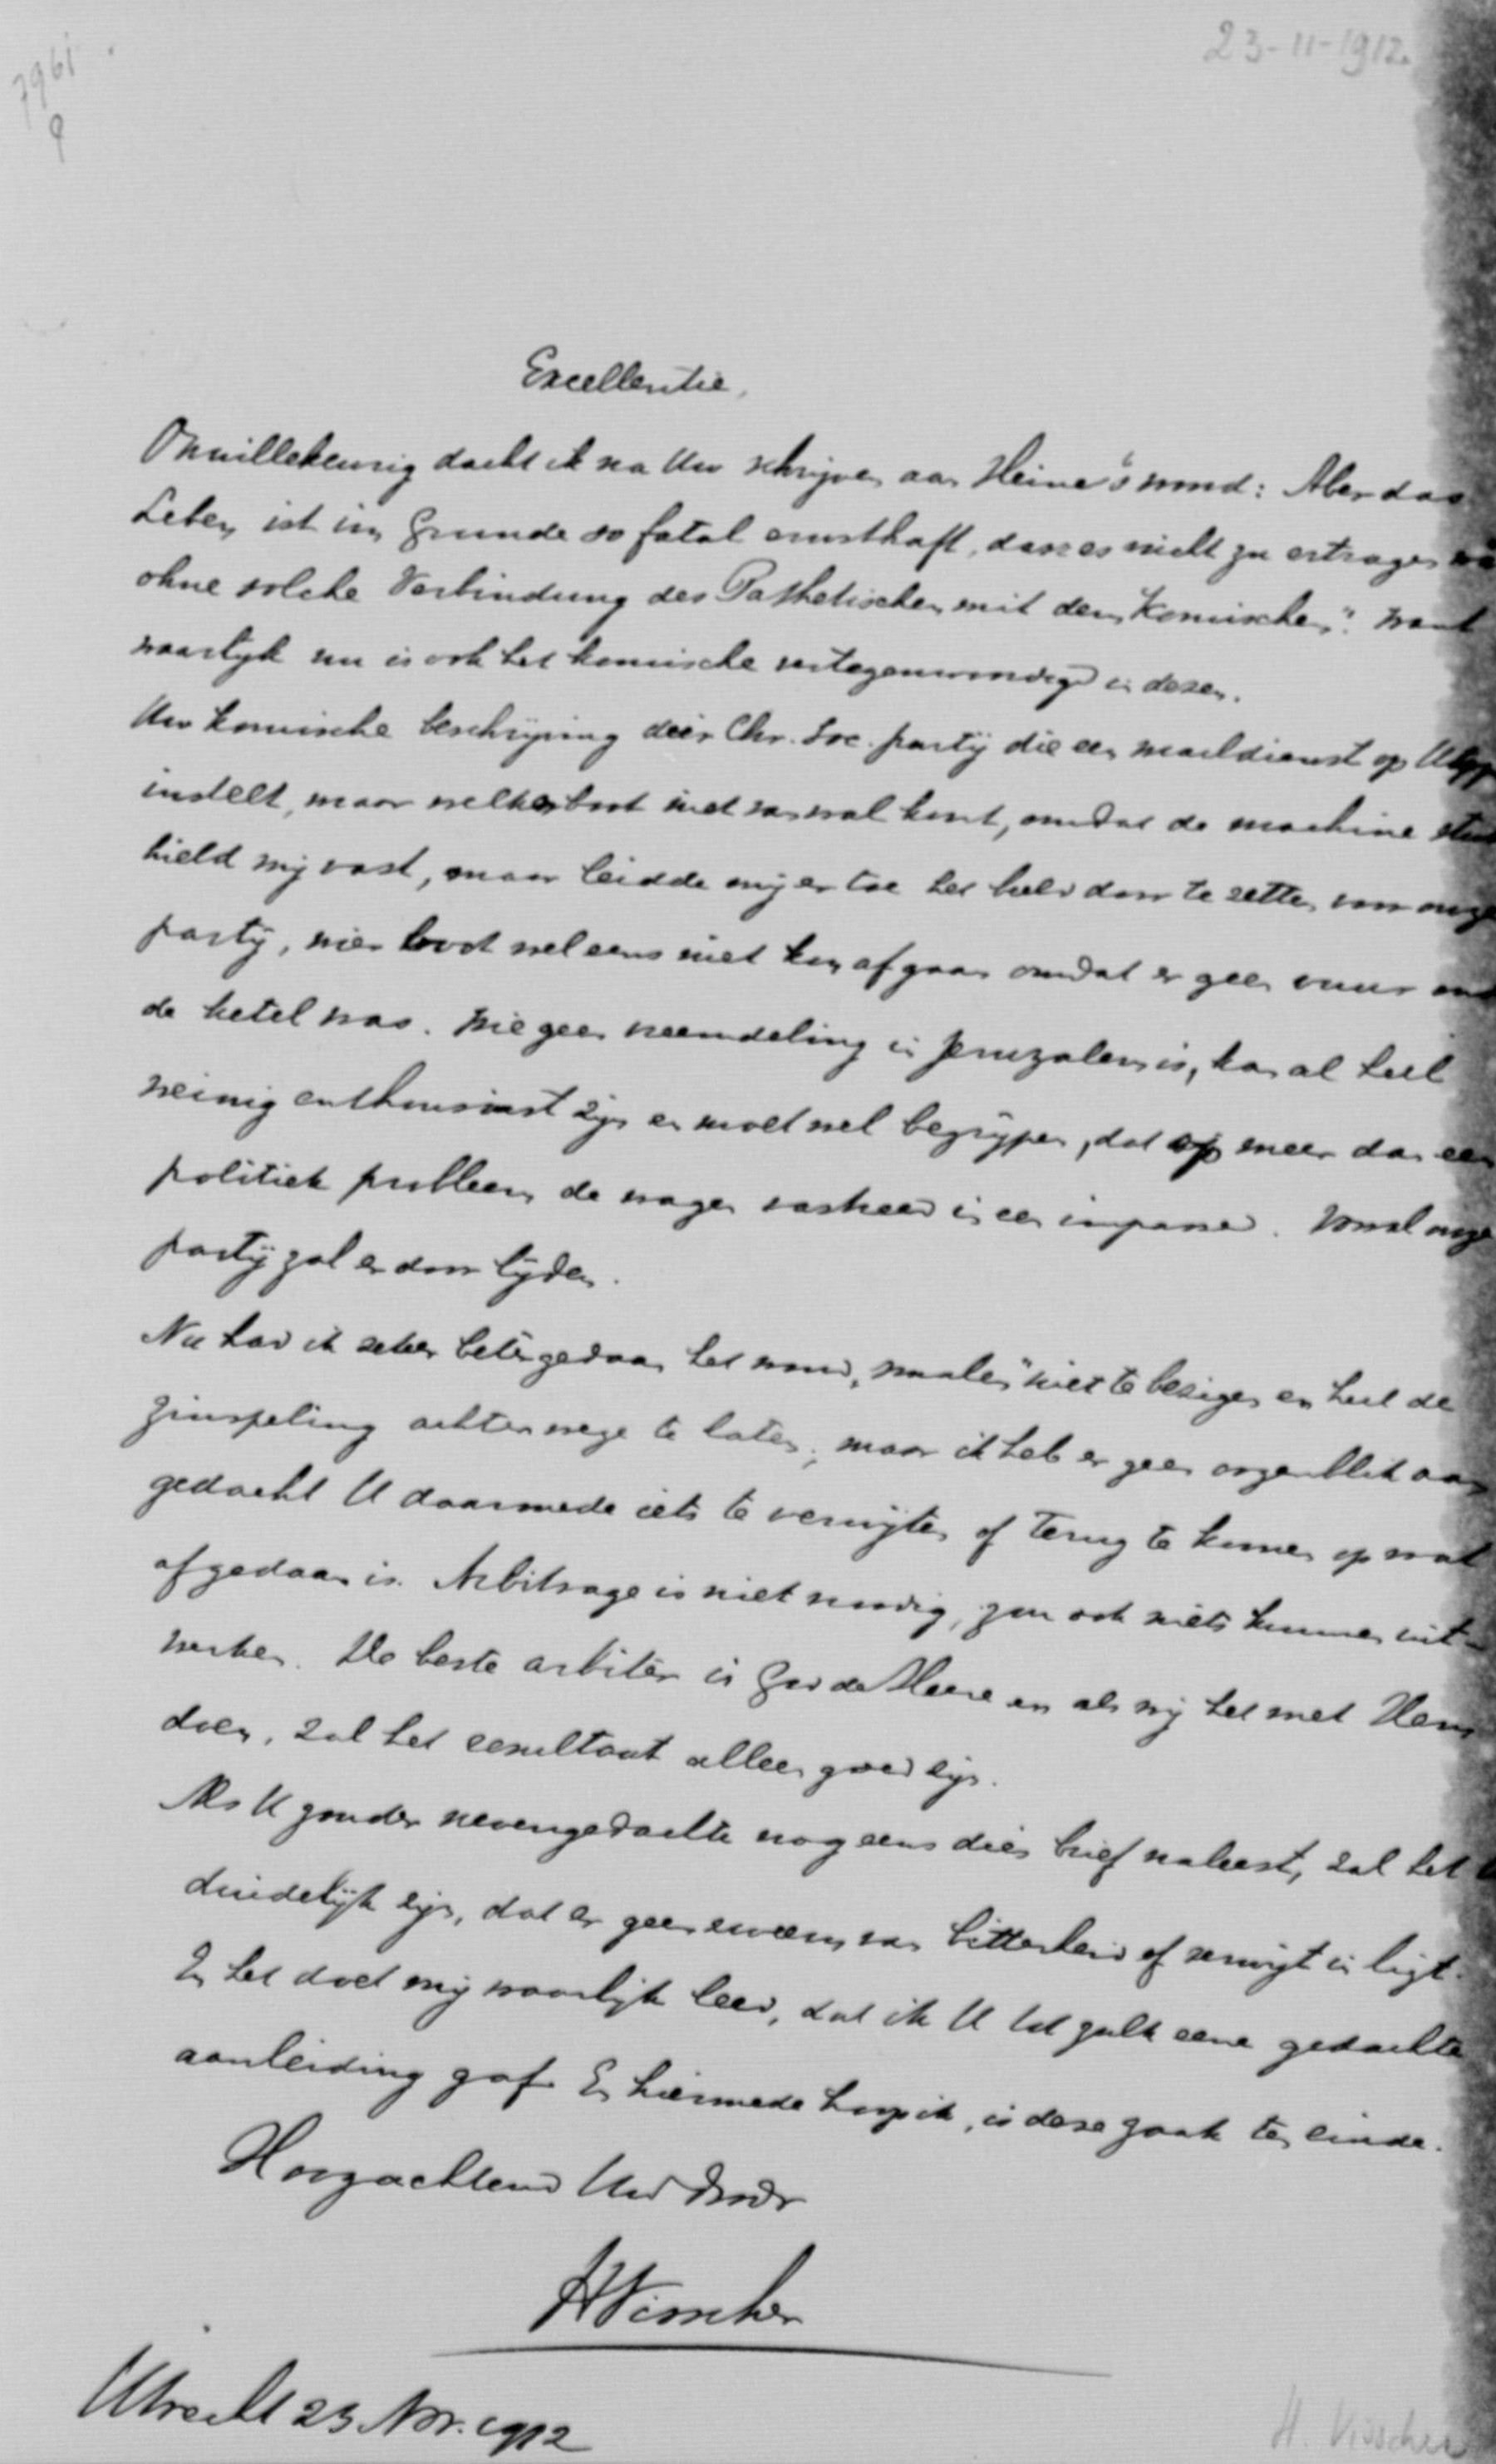 23-11-1912.
7961
9
Excellentie,
Onwillekeurig dacht ik na Uw schrijven aan Heine's woord: Aber das
Leben ist im Grunde so fatal ernsthaft, dass es nicht zu ertragen wä
ohne solche Verbindung des Pathetischen mit dem Komischen". Want
waarlijk nu is ook het komische vertegenwoordigd in dezen.
Uw komische beschrijving dier Chr. Soc. partij die een maildienst op
instelt, maar welker boot niet van wal komt, omdat de machine
hield mij vast, maar leidde mij er toe het beeld door te zetten voor onze
partij, wier boot wel eens niet kon afgaan omdat er geen vuur
de ketel was. Wie geen vreemdeling in Jeruzalem is, kan al heel
weinig enthousiast zijn en moet wel begrijpen, dat op meer dan een
politiek probleem de wagen vastreed in een impasse. Vooral onze
partij zal er door lijden.
Nu had ik zeker beter gedaan het woord "smalen" niet te bezigen en heel de
zinspeling achterwege te laten, maar ik heb er geen oogenblik aan
gedacht U daarmede iets te verwijten of terug te komen op wat
afgedaan is. Arbitrage is niet noodig, zou ook niets kunnen uit-
werken. De beste arbiter is God de Heere en als wij het met Hem
doen, zal het resultaat alleen goed zijn.
Als U zonder nevengedachte nog eens dien brief naleest, zal het U
duidelijk zijn, dat er geen zweem van bitterheid of verwijt in ligt.
En het doet mij waarlijk leed, dat ik U tot zulk eene gedachte
aanleiding gaf. En hiermede hoop ik, is deze zaak ten einde.
Hoogachtend Uw dw dr
HVisscher
Utrecht 23 Nov. 1912
H. Visscher